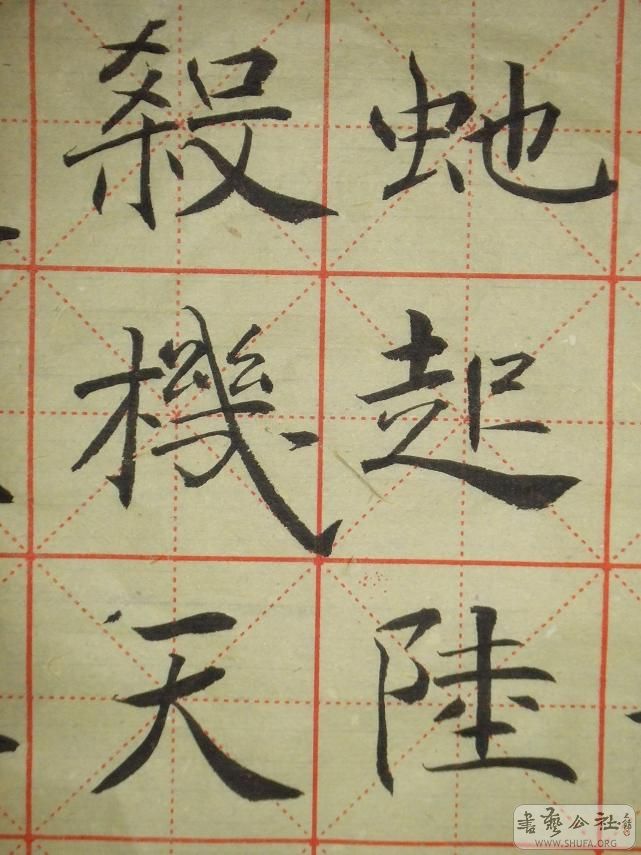 虵起陸
殺機天
書藝公社
WWW.SHUFA.ORG